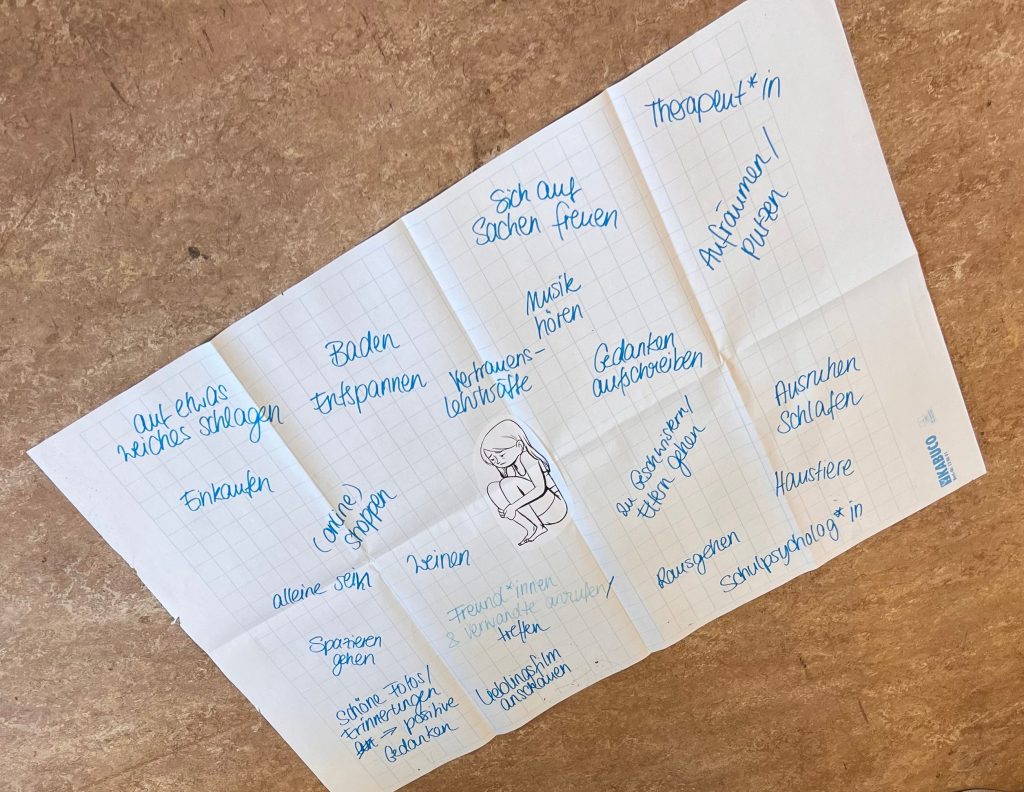 Therapeut*in
Aufräumen/
putzen
Sich auf
Sachen freuen
Musik
hören
Baden
Entspannen
Vertrauens-
lehrkräfte
Gedanken
aufschreiben
auf etwas
weiches schlagen
Einkaufen
(online)
shoppen
zu Geschwistern/
Eltern gehen
Ausruhen
Schlafen
Haustiere
Schulpsycholog*in
Rausgehen
Weinen
alleine sein
Freund*innen
& verwandte anrufen/
treffen
Spazieren
gehen
Lieblingsfilm
anschauen
schöne Fotos/
Erinnerungen
→ positive
Gedanken
KABUCO